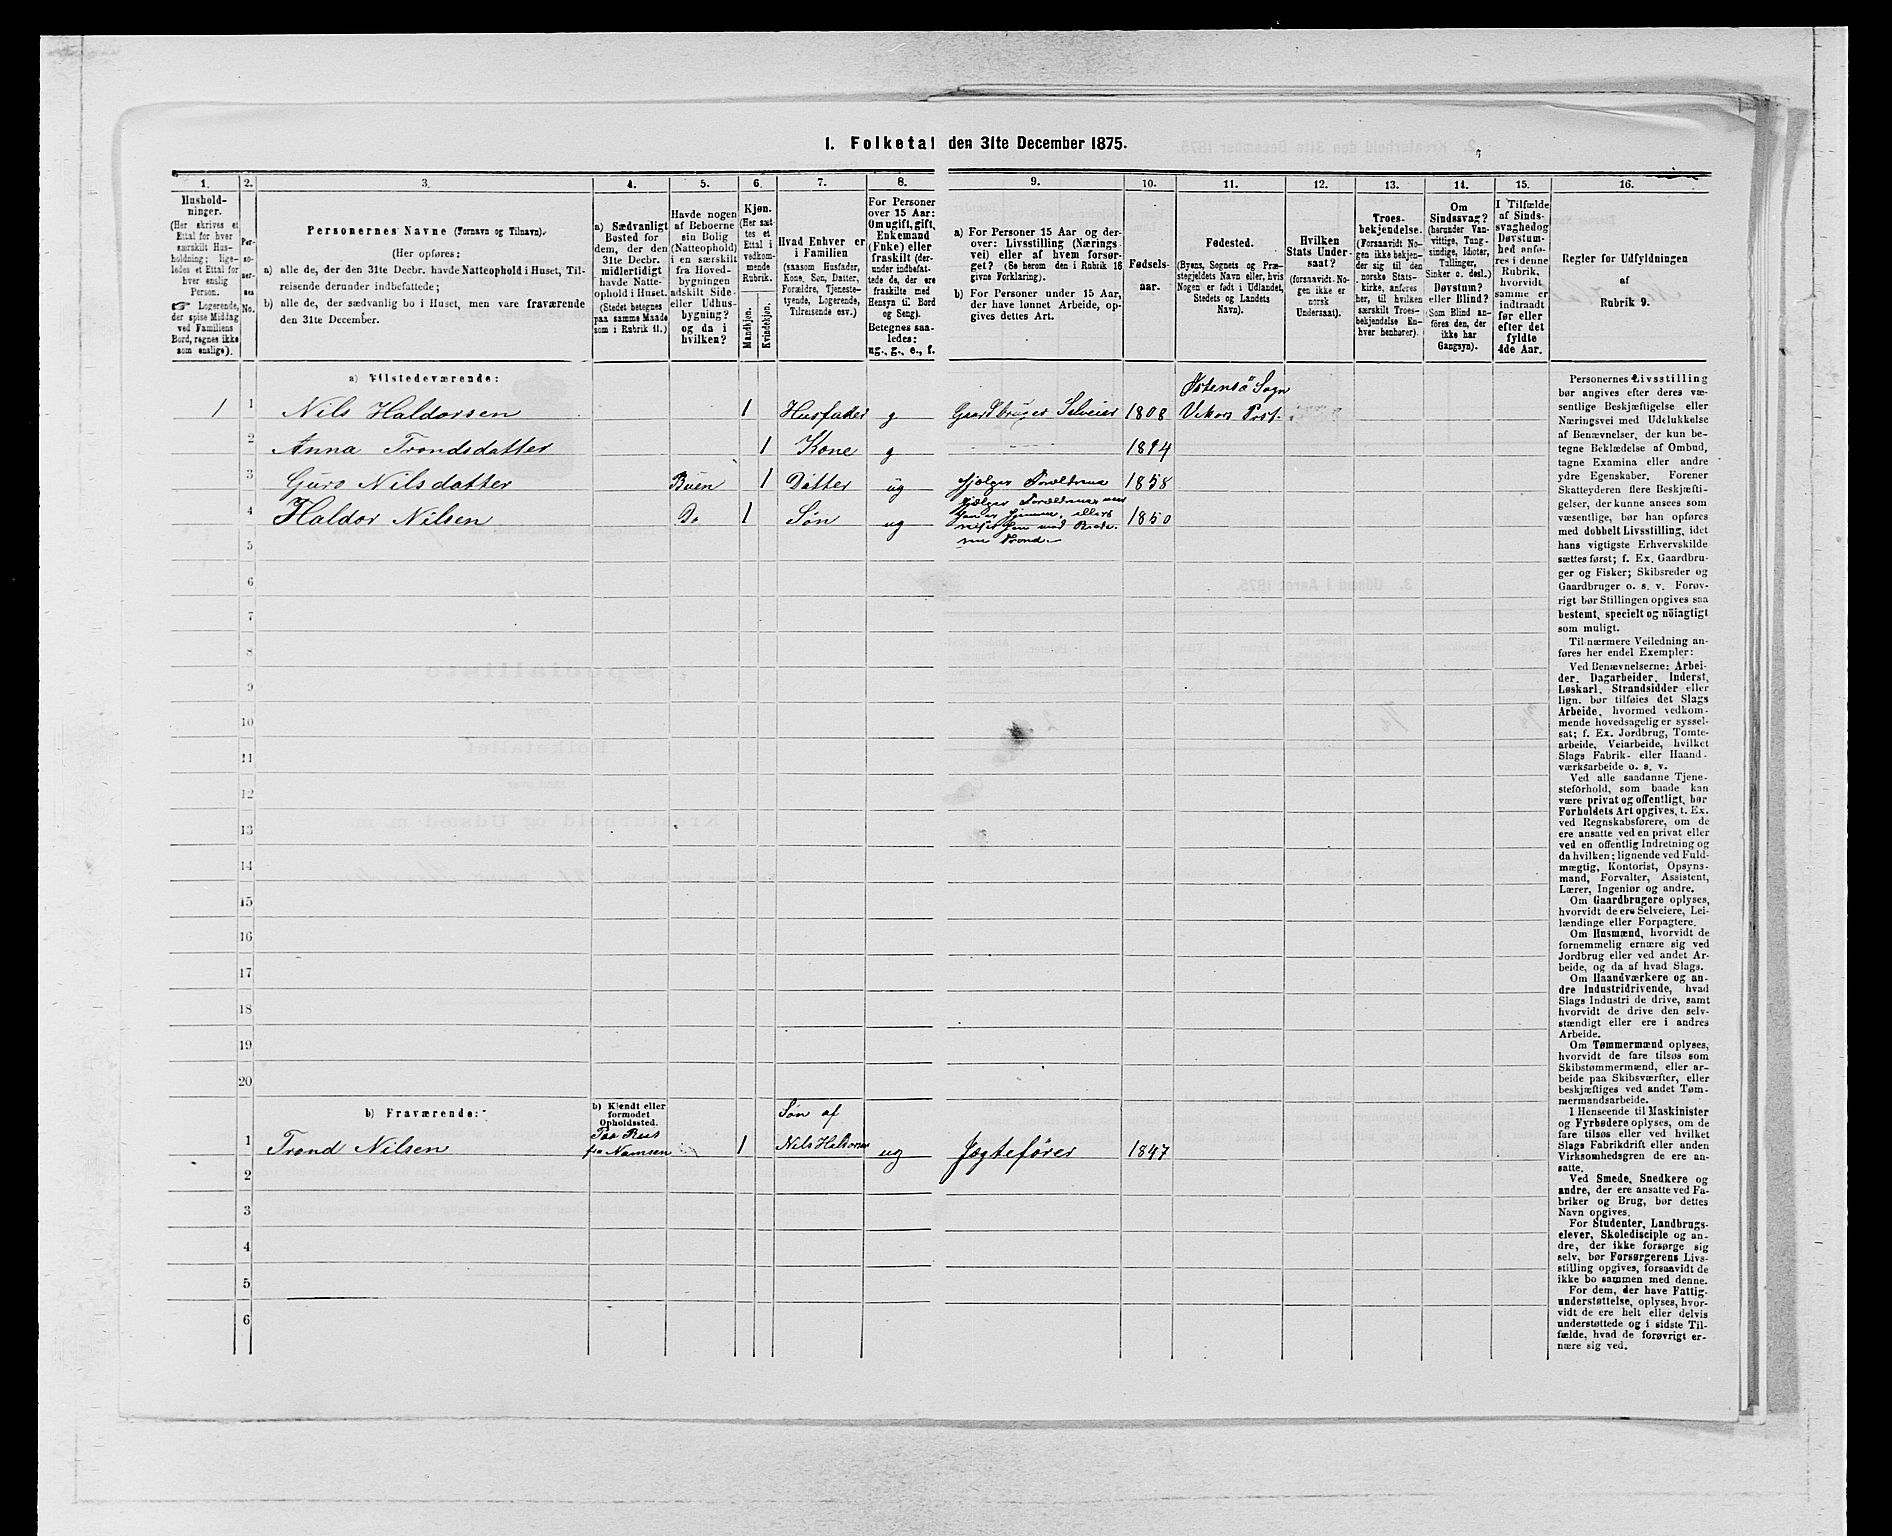 1. Folketal den 31te December 1875.
1. 2. 3. 4. 5. 6. 7. 8. 9. 10. 11. 12. 13. 14. 15. 16.
Hushold-
ninger.
(Her skrives et
Ettal for hver
særskilt Hus-
holdning; lige-
ledes et Ettal for
hver enslig
Person.
☞ Logerende,
der spise Middag
ved Familiens
Bord, regnes ikke
som enslige).
Per-
so-
ner-
nes
No.
Personernes Navne (Fornavn og Tilnavn).
(Her opføres:
a) alle de, der den 31te Decbr. havde Natteophold i Huset, Til-
reisende derunder indbefattede;
b) alle de, der sædvanlig bo i Huset, men vare fraværende
den 31te December.
a) Sædvanligt
Bosted for
dem, der den
31te Decbr.
midlertidigt
havde Natte-
ophold i Huset.
(Stedet betegnes
paa samme Maade
som i Rubrik 11.)
Havde nogen
af Beboerne
sin Bolig
(Natteophold)
i en særskilt
fra Hoved-
bygningen
adskilt Side-
eller Udhus-
bygning?
og da i
hvilken?
Kjøn.
(Her sæt-
tes et
Ettal i
vedkom-
mende
Rubrik.
Mandkjøn.
Kvindekjøn.
Hvad Enhver er
i Familien
(saasom Husfader,
Kone, Søn, Datter,
Forældre, Tjeneste-
tyende, Logerende,
Tilreisende osv.)
For Personer
over 15 Aar:
Om ugift, gift,
Enkemand
(Enke) eller
fraskilt (der-
under indbefat-
tede de, der ere
fraskilte med
Hensyn til Bord
og Seng).
Betegnes saa-
ledes:
ug., g., e., f.
a) For Personer 15 Aar og der-
over: Livsstilling (Nærings
vei) eller af hvem forsør-
get? (Se herom den i Rubrik 16
givne Forklaring).
b) For Personer under 15 Aar,
der have lønnet Arbeide, op-
gives dettes Art.
Fødsels-
aar.
Fødested.
(Byens, Sognets og Præ-
stegjeldets Navn eller, hvis
Nogen er født i Udlandet,
Stedets og Landets
Navn).
Hvilken
Stats Under-
saat?
(forsaavidt No-
gen ikke er
norsk
Undersaat).
Troes-
bekjendelse.
(Forsaavidt No-
gen ikke bekjen-
der sig til den
norske Stats-
kirke, anføres
her, til hvilken
særskilt Troes-
bekjendelse En-
hver henhører).
Om
Sindssvag?
(herunder Van-
vittige, Tung-
sindige, Idioter,
Tullinger,
Sinker o. desl.)
Døvstum?
eller Blind?
(Som Blind an-
føres den, der
ikke har
Gangsyn).
I Tilfælde
af Sinds-
svaghed og
Døvstum-
hed anfø-
res i denne
Rubrik,
hvorvidt
samme er
indtraadt
før eller
efter det
fyldte
4de Aar.
Regler for Udfyldningen
af
Rubrik 9.
a) Tilstedeværende:
Østensö Sogn
1 1 Nils Haldorsen 1 Husfader g Gaardbruger Selveier 1808 Vikørs Prst.
2 Anna Trondsdatter 1 Kone g 1814
3 Guro Nilsdatter Buen 1 Datter ug hjælper Forældrene 1858
4 Haldor Nilsen Do 1 Søn ug hjælper Forældrene naar
han er hjemme, ellers
med
Trond 1850
5
6
7
8
9
10
11
12
13
14
15
16
17
18
19
20
b) Fraværende:
b) Kjendt eller
formodet
Opholdssted.
1 Trond Nilsen Paa Reis
fra Namsen 1 Søn af
Nils Haldorsen ug Jægtefører 1847
2
3
4
5
6
Personernes Livsstilling
bør angives efter deres væ-
sentlige Beskjæftigelse eller
Næringsvei med Udelukkelse
af Benævnelser, der kun be-
tegne Beklædelse af Ombud,
tagne Examina eller andre
ydre Egenskaber. Forener
Skatteyderen flere Beskjæfti-
gelser, der kunne ansees som
væsentlige, bør han opføres
med dobbelt Livsstilling, idet
hans vigtigste Erhvervskilde
sættes først; f. Ex. Gaardbru-
ger og Fisker; Skibsreder og
Gaardbruger o. s. v. Forøv-
rigt bør Stillingen opgives saa
bestemt, specielt og nöiagtigt
som muligt.
Til nærmere Veiledning an-
føres her endel Exempler:
Ved Benævnelserne: Arbei-
der, Dagarbeider, Inderst,
Løskarl, Strandsidder eller
lign. bør tilføies det Slags
Arbeide, hvormed vedkom-
mende hovedsagelig er syssel-
sat; f. Ex. Jordbrug, Tomte-
arbeide, Veiarbeide, hvilket
Slags Fabrik- eller Haand-
værksarbeide o. s. v.
Ved alle saadanne Tjene-
steforhold, som baade kan
være privat og offentligt, bør
Forholdets Art opgives, t. Ex.
ved Regnskabsførere, om de
ere ansatte ved en privat eller
ved en offentlig Indretning og
da hvilken; lignende ved Fuld-
mægtig, Kontorist, Opsyns-
mand, Forvalter, Assistent,
Lærer, Ingeniør og andre.
Om Gaardbrugere oplyses,
hvorvidt de ere Selveiere, Lei-
lændinge eller Forpagtere.
Om Husmænd, hvorvidt de
fornemmelig ernære sig ved
Jordbrug eller ved andet Ar-
beide, og da af hvad Slags.
Om Haandværkere og an-
dre Industridrivende, hvad
Slags Industri de drive, samt
hvorvidt de drive den selv-
stændigt eller ere i andres
Arbeide.
Om Tømmermænd oplyses,
hvorvidt de fare tilsøs som
Skibstømmermænd, eller ar-
beide paa Skibsværfter, eller
beskjæftiges ved andet Tøm-
mermandsarbeide.
I Henseende til Maskinister
og Fyrbødere oplyses, om de
fare tilsøs eller ved hvilket
Slags Fabrikdrift eller anden
Virksomhedsgren de ere an-
satte.
Ved Smede, Snedkere og
andre, der ere ansatte ved Fa-
briker og Brug, bør dettes
Navn opgives.
For Studenter, Landbrugs-
elever, Skoledisciple og an-
dre, der ikke forsørge sig
selv, bør Forsørgerens Livs-
stilling opgives, forsaavidt de
ikke bo sammen med denne.
For dem, der have Fattig-
understøttelse, oplyses, hvor-
vidt de ere helt eller delvis
understøttede og i sidste Til-
fælde, hvad de forøvrigt er-
nære sig ved.